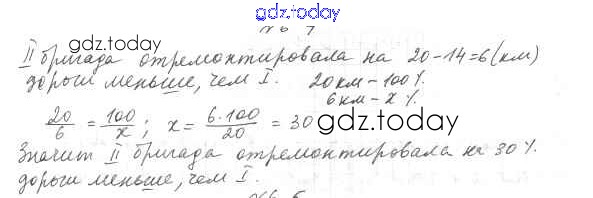 gdz.today
№ 7
II бригада отремонтировала на 20-14=6(км)
дороги меньше, чем I. 20км-100%.
6км-x%.
20/6 = 100/x; x = 6·100/20 = 30
gdz.today
gdz.today
Значит II бригада отремонтировала на 30%.
дороги меньше, чем I.
gdz.today